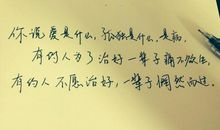 你说爱是什么，孤独是什么，是病，
有的人为了治好一辈子痛不欲生，
有的人不愿治好，一辈子偶然而过。